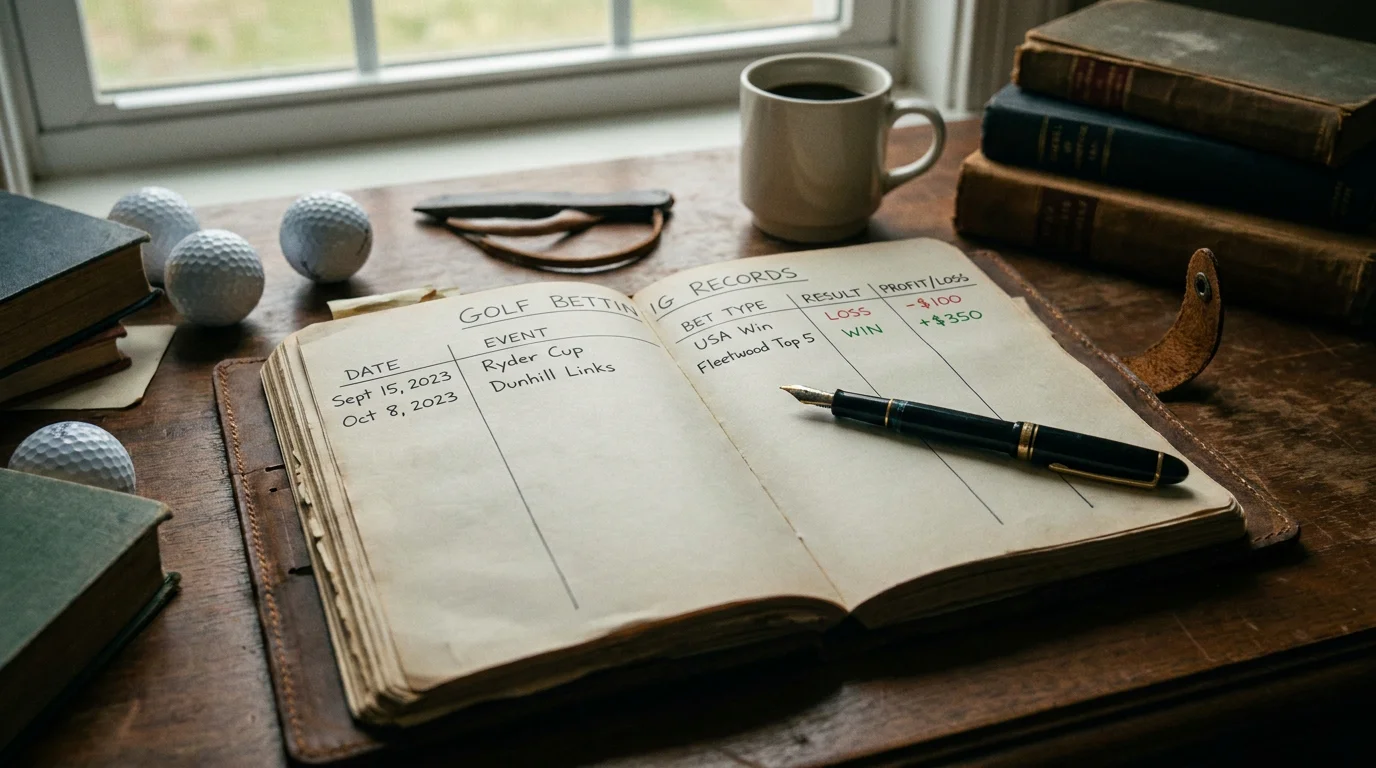 GOLF BETTING RECORDS
DATE EVENT BET TYPE RESULT PROFIT/LOSS
Sept 15, 2023 Ryder Cup USA Win LOSS -$100
Oct 8, 2023 Dunhill Links Fleetwood Top 5 WIN +$350